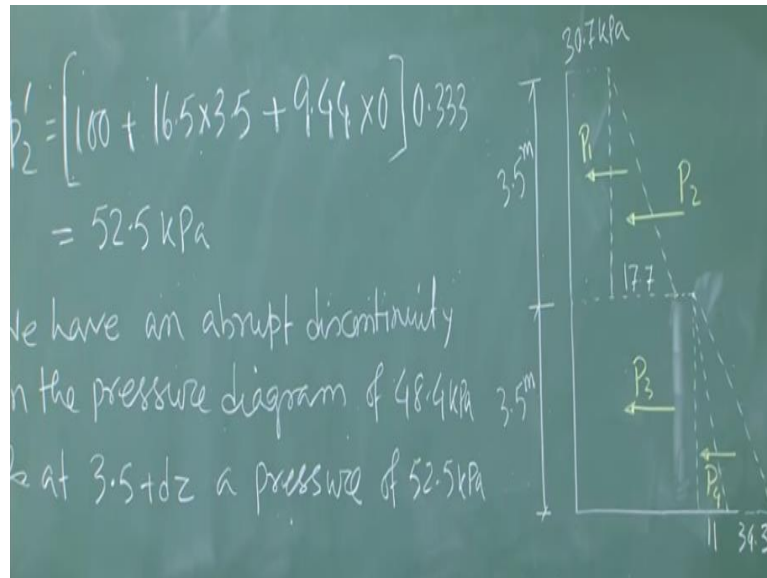 P₂' = [100 + 16.5x3.5 + 9.44 x0] 0.333
= 52.5 kPa
We have an abrupt discontinuity
in the pressure diagram of 48.4 kPa
& at 3.5+dz a pressure of 52.5 kPa
30.7 kPa
3.5 m
P₁
P₂
17.7
3.5 m
P₃
P₄
11
34.3